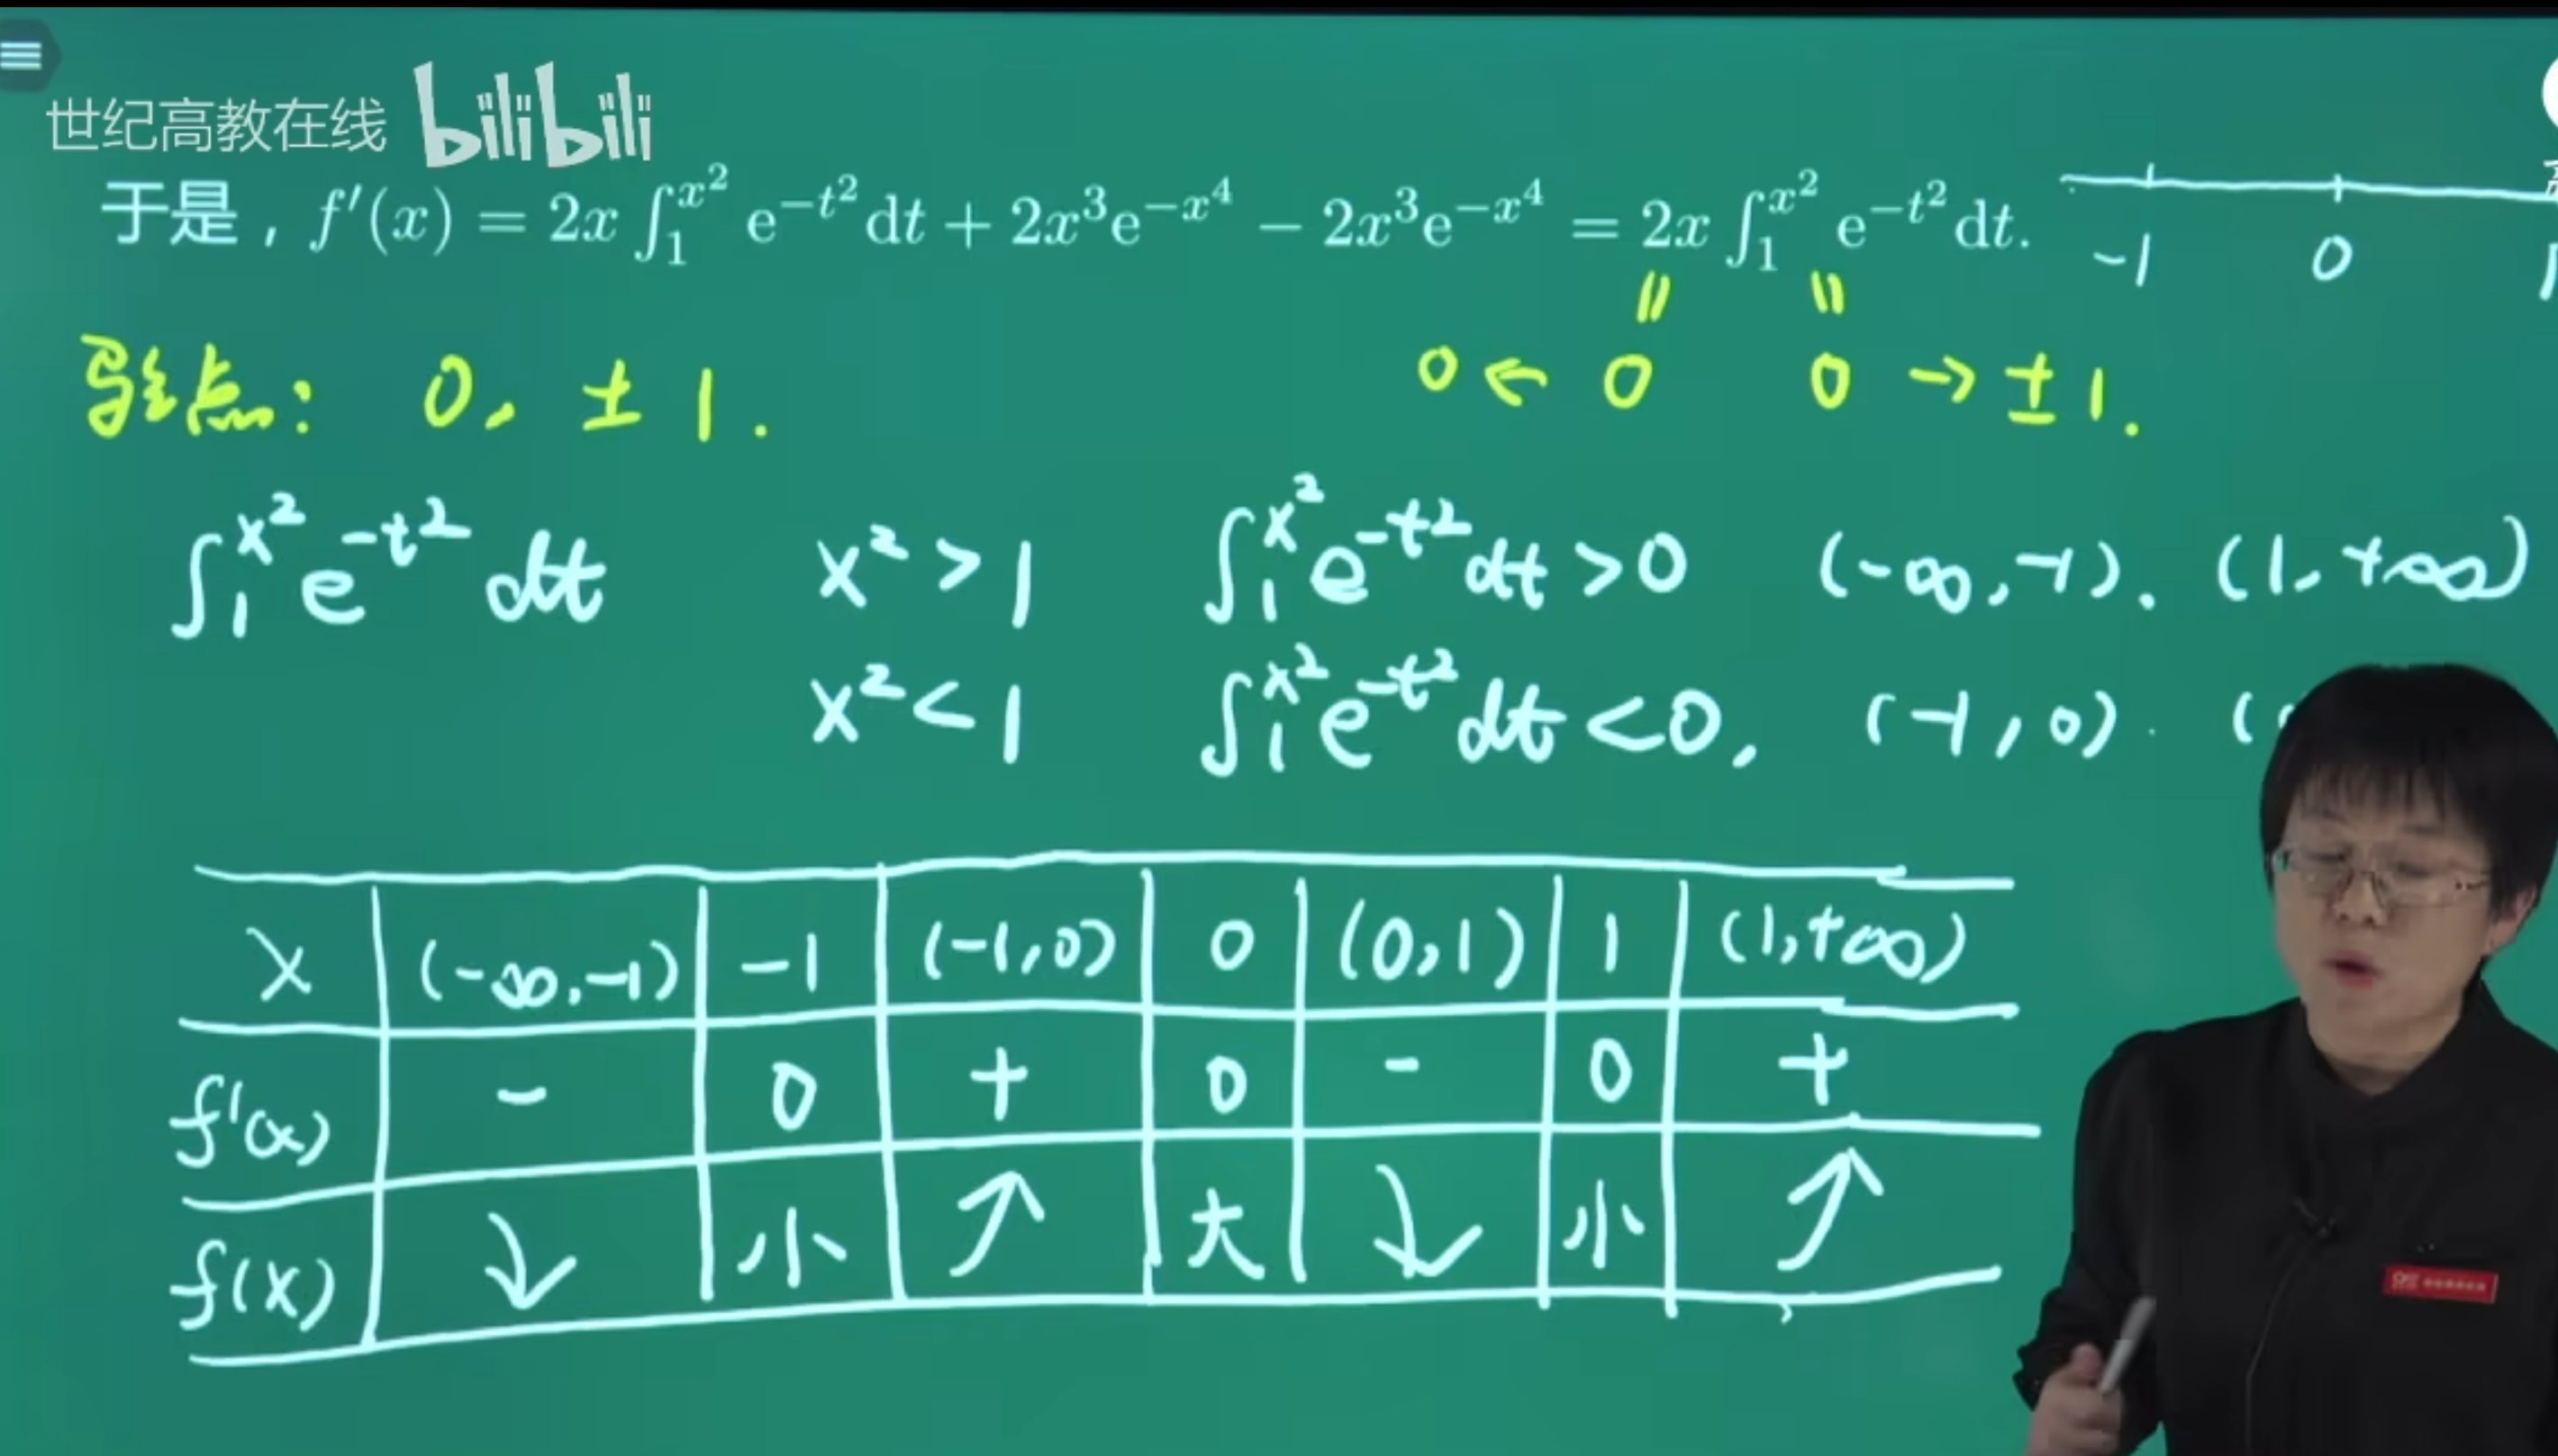 世纪高教在线 bilibili
于是，f′(x) = 2x ∫₁^{x²} e^{−t²}dt + 2x³e^{−x⁴} − 2x³e^{−x⁴} = 2x ∫₁^{x²} e^{−t²}dt.
-1 0 1
|| ||
驻点: 0, ±1.
0 ← 0 0 → ±1.
∫₁^{x²} e^{-t²} dt x² > 1 ∫₁^{x²} e^{-t²} dt > 0 (-∞,-1). (1,+∞)
x² < 1 ∫₁^{x²} e^{-t²} dt < 0, (-1,0). (
x (-∞,-1) -1 (-1,0) 0 (0,1) 1 (1,+∞)
f'(x) - 0 + 0 - 0 +
f(x) ↘ 小 ↗ 大 ↘ 小 ↗